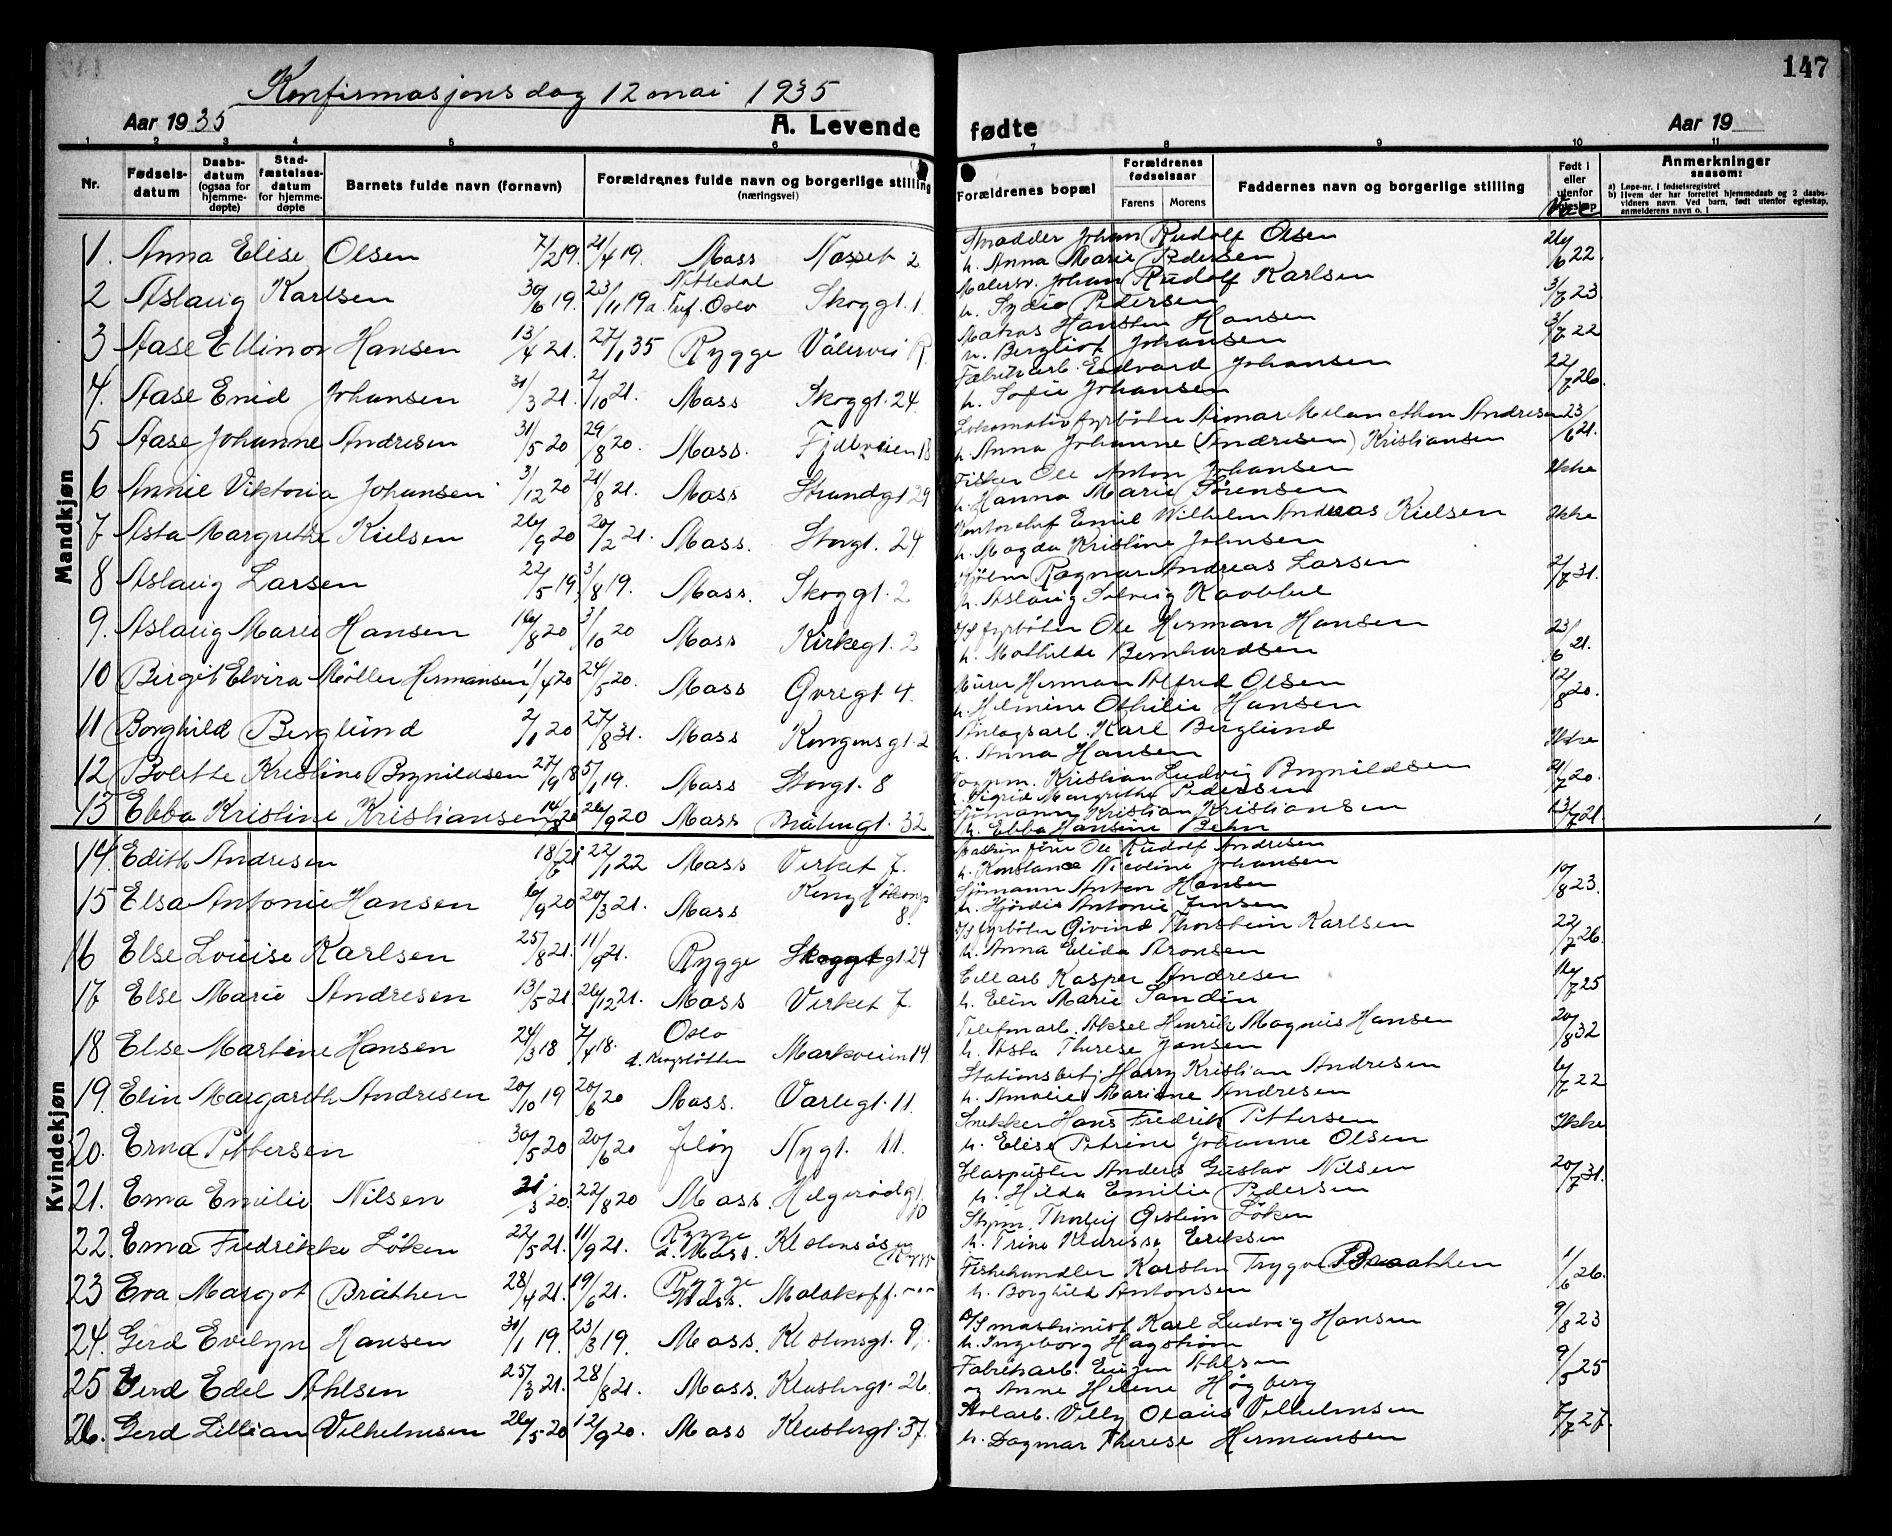 147
Konfirmasjonsdag 12 mai 1935
Aar 1935 A. Levende fødte Aar 19
1 2 3 4 5 6 7 8 9 10 11
Nr.
Fødsels-
datum
Daabs-
datum
(ogsaa for
hjemme-
døpte)
Stad-
fæstelses-
datum
for hjemme-
døpte
Barnets fulde navn (fornavn)
Forældrenes fulde navn og borgerlige stilling
(næringsvei)
Forældrenes bopæl
Forældrenes
fødselsaar
Farens Morens
Faddernes navn og borgerlige stilling
Født i
eller
utenfor
Vac.
Anmerkninger
saasom:
a) Løpe-nr. i fødselsregistret
b) Hvem der har forrettet hjemmedaab og 2 daabs-
vidners navn. Ved barn, født utenfor egteskap,
anmelderens navn o. l
Mandkjøn
Kvindekjøn
1. Anna Elise Olsen 7/2 19. 21/4 19. Moss Nesset 2
Johan Rudolf Olsen 26/6 22.
h. Anna Marie Pedersen
2 Aslaug Karlsen 30/6 19. 23/11 19 Nittedal Oslo Skoggt. 1.
Malersv. Johan Rudolf Karlsen 3/7 23
h. Pedersen
3 Aase Ellinor Hansen 13/4 21. 27/1 35 Rygge Vålervei R.
Matros Hansten Hansen 3/7 22
h. Bergliot Johansen
4. Aase Enid Johansen 31/3 21. 2/10 21. Moss Skoggt. 24.
Fabrikarb. Edvard Johansen 22/7 26.
h. Sofie Johansen
5 Aase Johanne Andresen 31/5 20 29/8 20. Moss.
Lokomotivfyrbøter Andresen 23/6 21.
h. Anna Johanne (Andresen) Kristiansen
6 Annie Viktoria Johansen 3/12 20 21/8 21. Moss Strandgt 29
Fisker Ole Anton Johansen Ikke
h. Hanna Marie Sørensen
7 Asta Margrethe Kielsen 26/9 20 20/2 21. Moss. Storgt. 24
Kontorchef Emil Wilhelm Andreas Kielsen Ikke
h. Magda Kristine Johnsen
8 Aslaug Larsen 22/5 19, 3/8 19. Moss. Skoggt. 2
Ragnar Andreas Larsen 2/7 31.
h. Aslaug Solveig
9. Aslaug Marie Hansen 16/8 20 3/10 20 Moss Kirkegt. 2
fyrbøter Ole Herman Hansen 23/6 21.
h. Mathilde Bernhardsen
10 Birgit Elvira Møller Hermansen 1/4 20 24/5 20. Moss Øvregt. 4.
Murer Herman Alfred Olsen 12/8 20.
h. Helmine Othilie Hansen
11 Borghild Berglund 2/1 20 27/8 31. Moss Kongensgt. 2
Anlagsarb. Karl Berglund Ikke
h. Anna Hansen
12 Bolette Kristine Brynildsen 27/9 18 5/1 19. Moss Storgt. 8
Kristian Ludvig Brynildsen 21/7 20.
h. Sigrid Margrethe Pedersen
13 Ebba Kristine Kristiansen 26/9 20 Moss 32
Sjømann Kristian Kristiansen 13/7 21.
h. Ebba Hansine Behn
14. Edith Andresen 18/6 21 22/1 22 Moss Verket 7.
Ole Rudolf Andresen
h. Konstance Nicoline Johansen 10/8 23.
15 Elsa Antonie Hansen 6/9 20 20/3 21. Moss Kong Håkonsg 8.
Sjømann Anton Hansen
h. Hjørdis Antonie Jensen
16 Else Louise Karlsen 25/8 21. 11/9 21. Rygge Skoggt 24
fyrbøter Øivind Thorstein Karlsen 22/7 26.
h. Anna Elida Aronsen
17 Else Marie Andresen 13/5 21 26/12 21. Moss Verket 7.
Kasper Andresen 16/7 25
h. Elin Marie Sandin
18 Else Martine Hansen 24/3 18 7/4 18. Oslo Markveien 14
Telefonarb. Aksel Henrik Magnus Hansen 20/8 32
h. Asta Therese Jansen
19. Elin Margareth Andresen 20/10 19 20/6 20 Moss. Varlegt. 11.
Stationsbetj. Harry Kristian Andresen 6/7 22
h. Amalie Mariane Andresen
20. Erna Pettersen 30/5 20 20/6 20 Jeløy Nygt. 11.
Snekker Hans Fredrik Pettersen Ikke
h. Elise Petrine Johanne Olsen
21. Erna Emilie Nilsen 21/3 20. 22/8 20 Moss. Helgerødgt. 10
Glaspuster Anders Gustav Nilsen 20/7 31.
h. Hilda Emilie Pedersen
22. Erna Fredrikke Løken 22/5 21. 11/9 21. Rygge Moss.
Thorleif Øistein Løken
h. Trine Eriksen
23 Eva Margot Bråthen 28/4 21. 19/6 21. Rygge Moss. Malakoff
Fiskehandler Karsten Trygve Braathen 1/6 26.
h. Borghild Antonsen
24. Gerd Evelyn Hansen 30/1 19. 23/3 19. Moss. 9.
maskinist Karl Ludvig Hansen 9/8 23
h. Ingeborg Hagstrøm
25 Gerd Edel Ahlsen 25/3 21. 28/8 21. Moss. Klostergt. 26.
Fabrikarb. Eugen Ahlsen 9/5 25
og Anne Helene Høgberg
26. Gerd Lillian Vilhelmsen 26/5 20 12/9 20. Moss Klostergt. 37.
Villy Olaus Vilhelmsen 7/7 27.
h. Dagmar Therese Hermansen